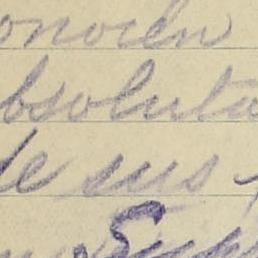 onocen
absoluta
de sus